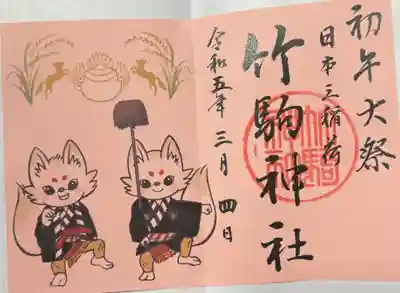 初午大祭
日本三稲荷
竹駒神社
令和五年三月四日